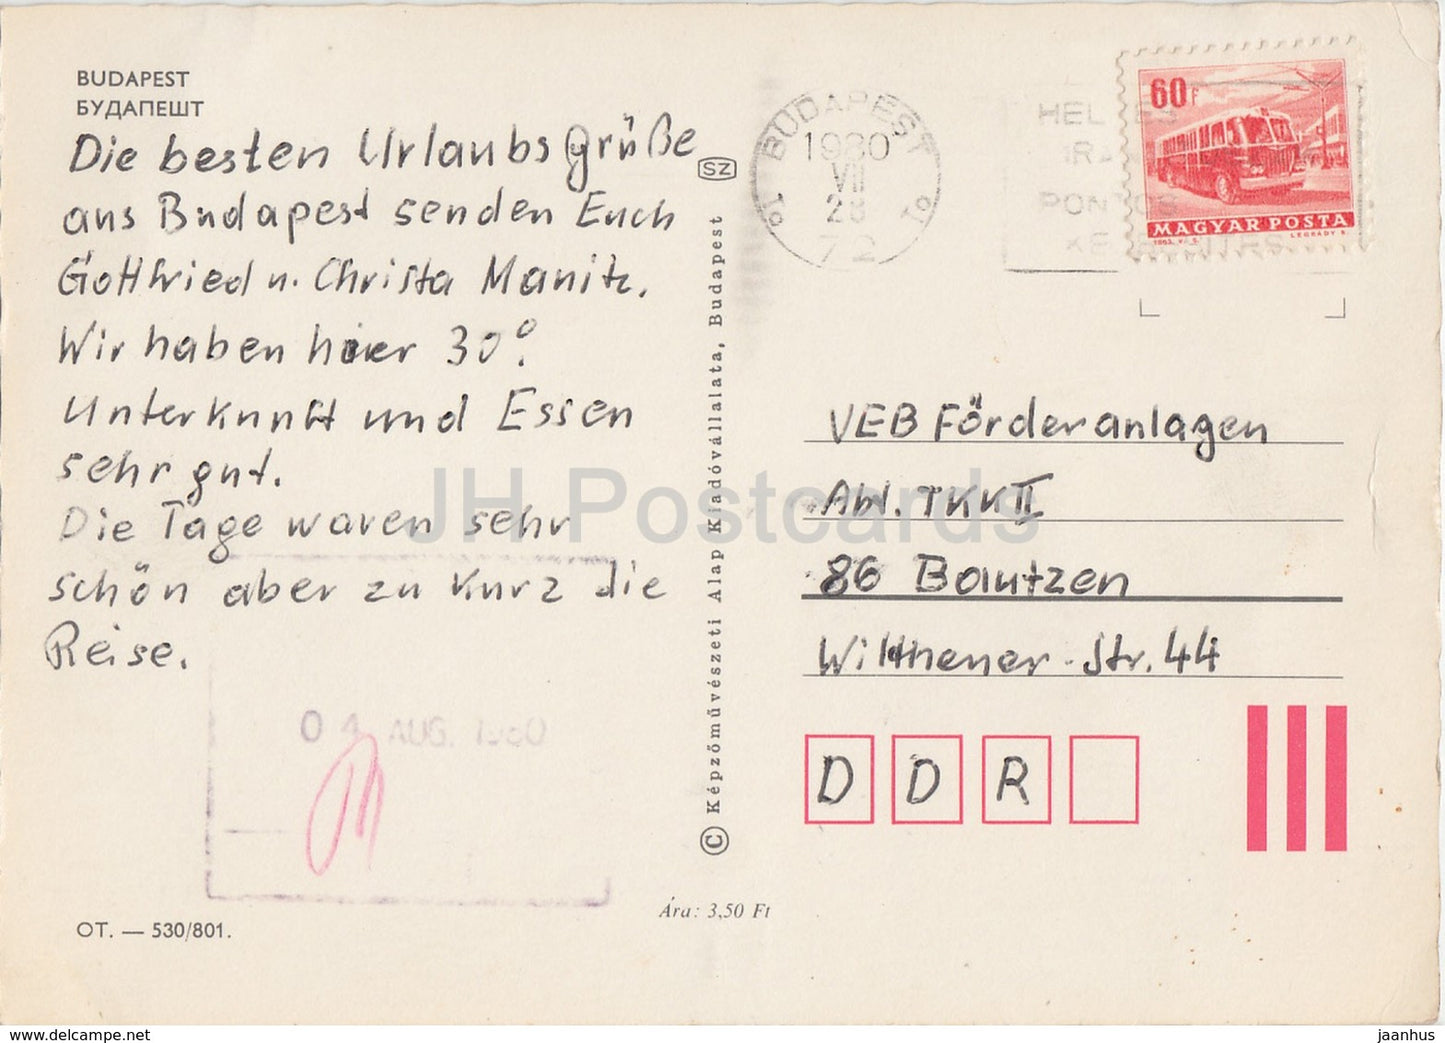 BUDAPEST
БУДАПЕШТ
Die besten Urlaubsgrüße
aus Budapest senden Euch
Gottfried u. Christa Manitz.
Wir haben hier 30°.
Unterkunft und Essen
sehr gut.
Die Tage waren sehr
schön aber zu kurz die
Reise.
04 AUG. 1980
OT. — 530/801.
SZ
© Képzőművészeti Alap Kiadóvállalata, Budapest
Ára: 3,50 Ft
BUDAPEST
1980
VII
28
72
60f
MAGYAR POSTA
1963. V. S.
LÉGRÁDY S.
VEB Förderanlagen
Abt. TKK II
86 Bautzen
Wilthener-Str. 44
D D R
JH Postcards
www.delcampe.net
jaanhus